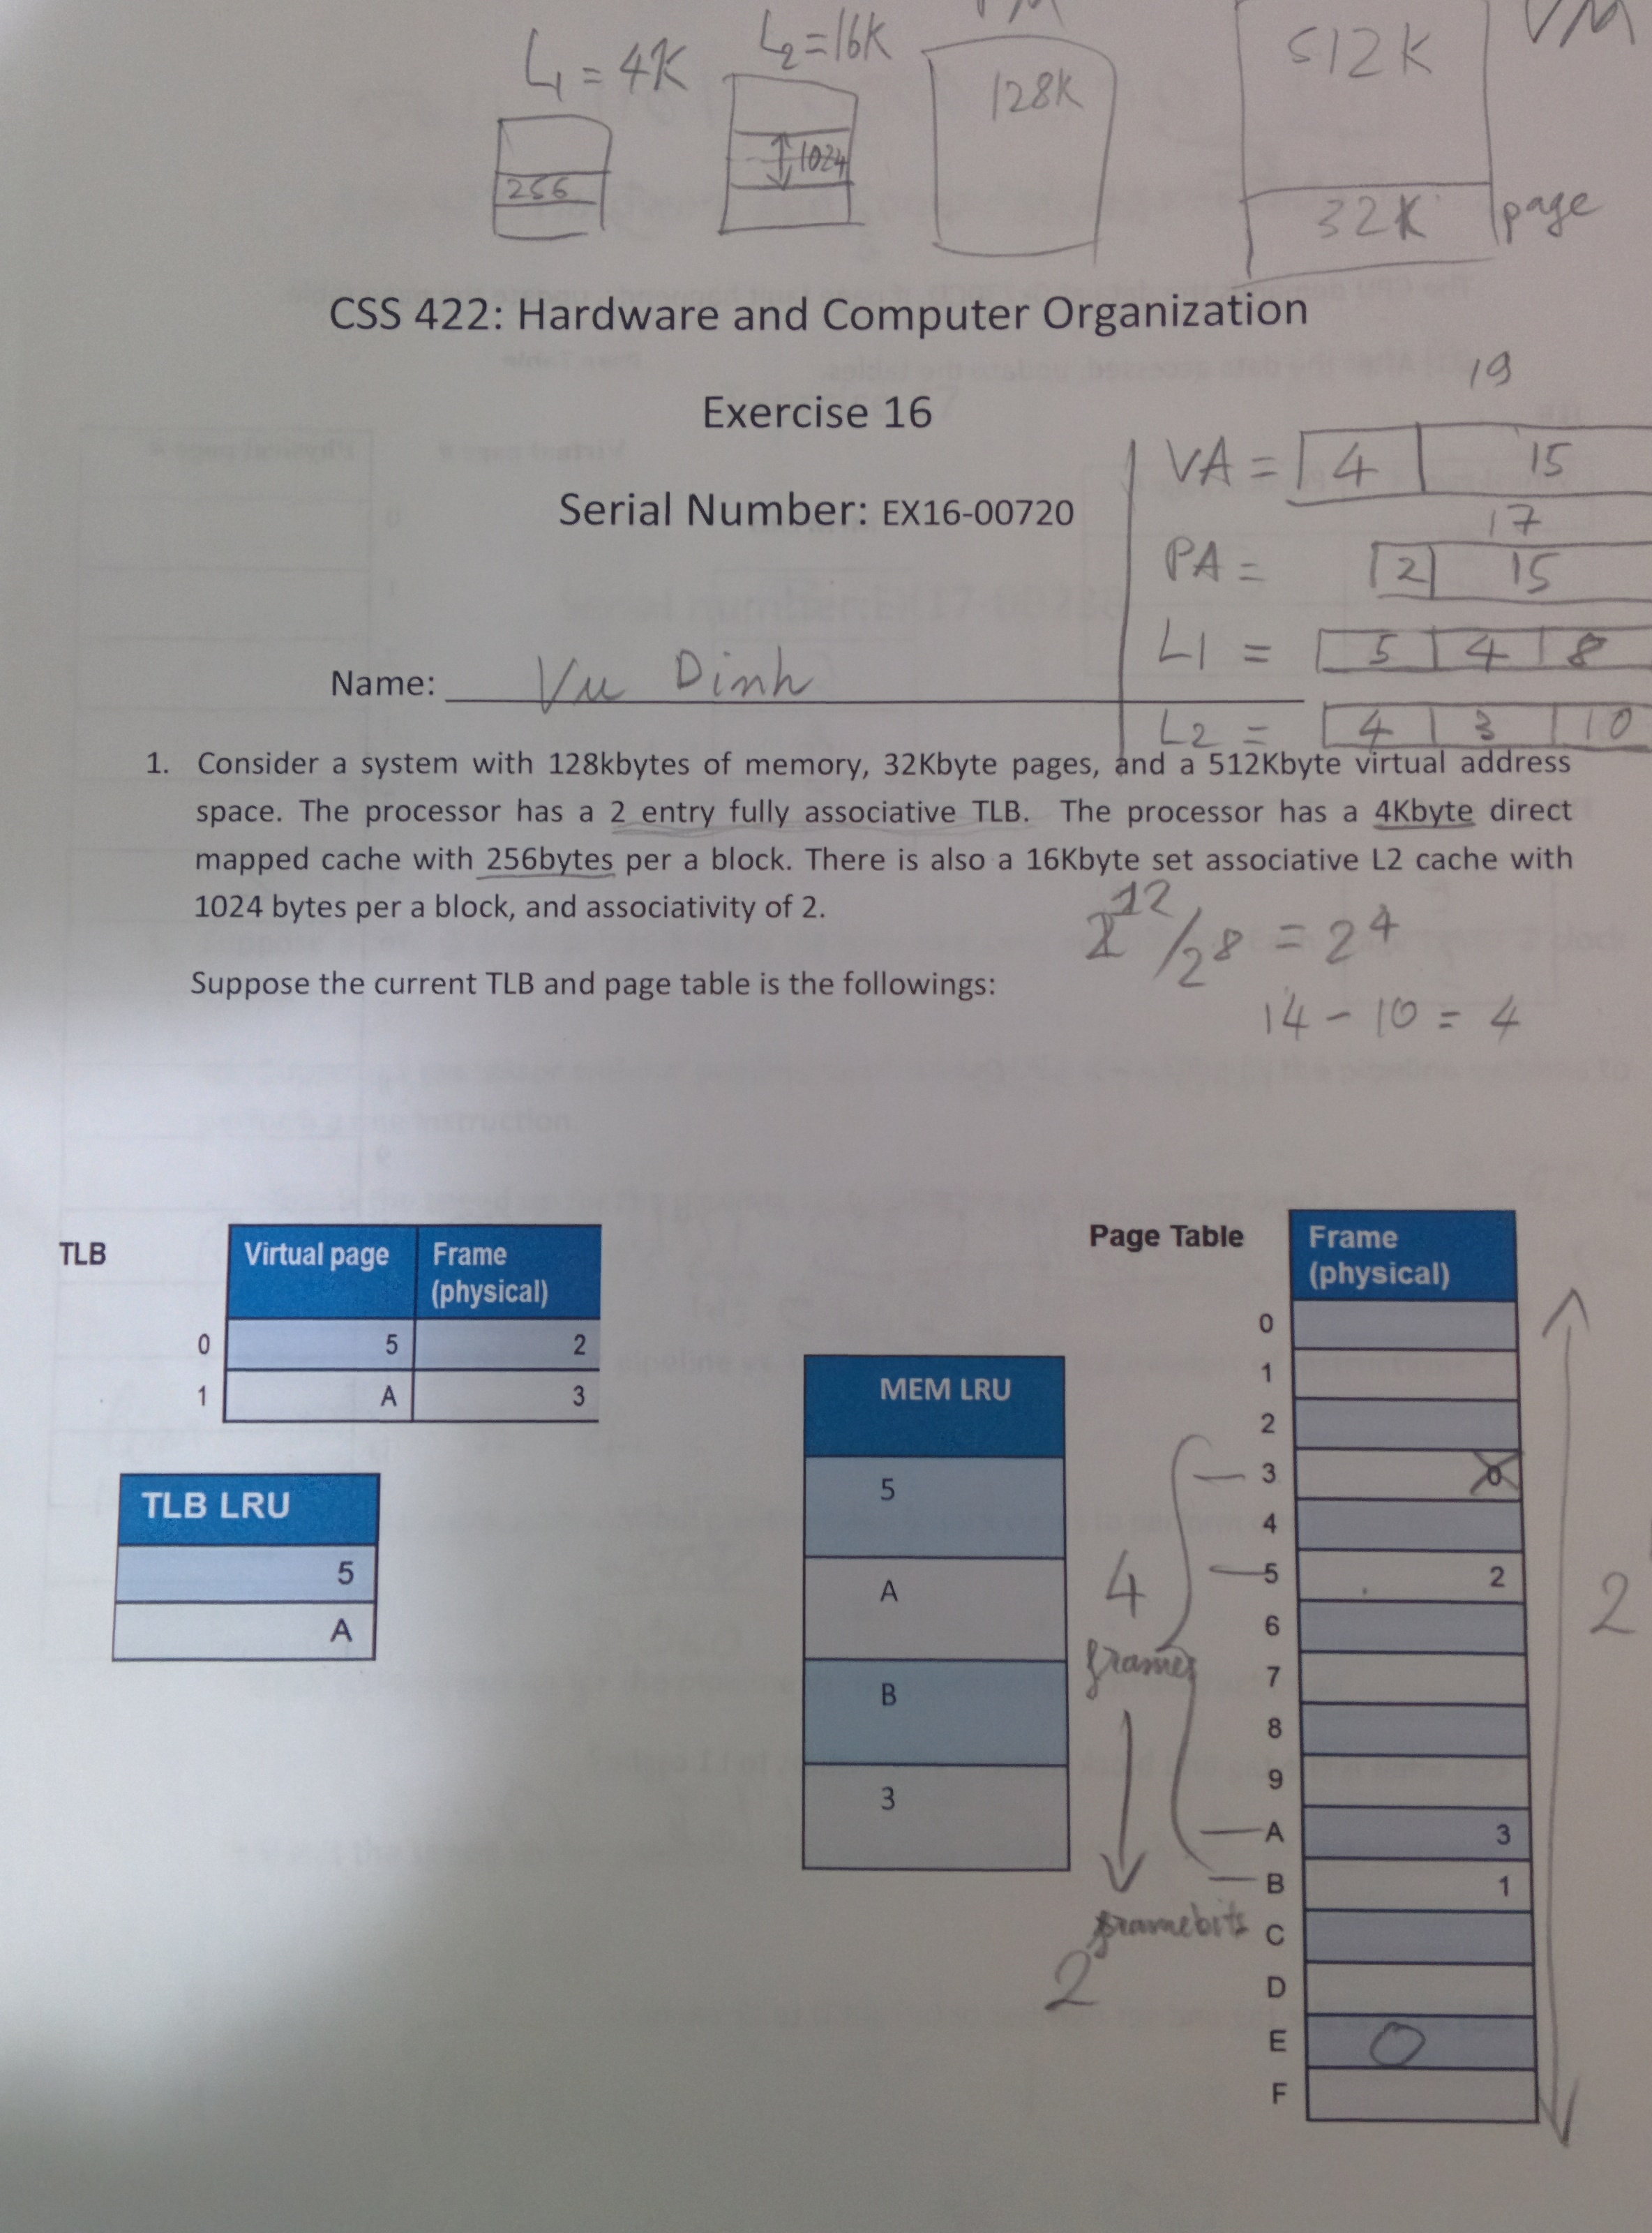 L1 = 4K
L2 = 16K
VM
256
1024
128K
512K
32K page
CSS 422: Hardware and Computer Organization
Exercise 16
Serial Number: EX16-00720
19
VA = 4 15
17
PA = 2 15
L1 = 5 4 8
L2 = 4 3 10
Name: Vu Dinh
1. Consider a system with 128kbytes of memory, 32Kbyte pages, and a 512Kbyte virtual address
space. The processor has a 2 entry fully associative TLB. The processor has a 4Kbyte direct
mapped cache with 256bytes per a block. There is also a 16Kbyte set associative L2 cache with
1024 bytes per a block, and associativity of 2.
2^12 / 2^8 = 2^4
Suppose the current TLB and page table is the followings:
14 - 10 = 4
TLB
Virtual page Frame
(physical)
0 5 2
1 A 3
TLB LRU
5
A
MEM LRU
5
A
B
3
4
frames
frame bits
2
Page Table
Frame
(physical)
0
1
2
3 0
4
5 2
6
7
8
9
A 3
B 1
C
D
E 0
F
2